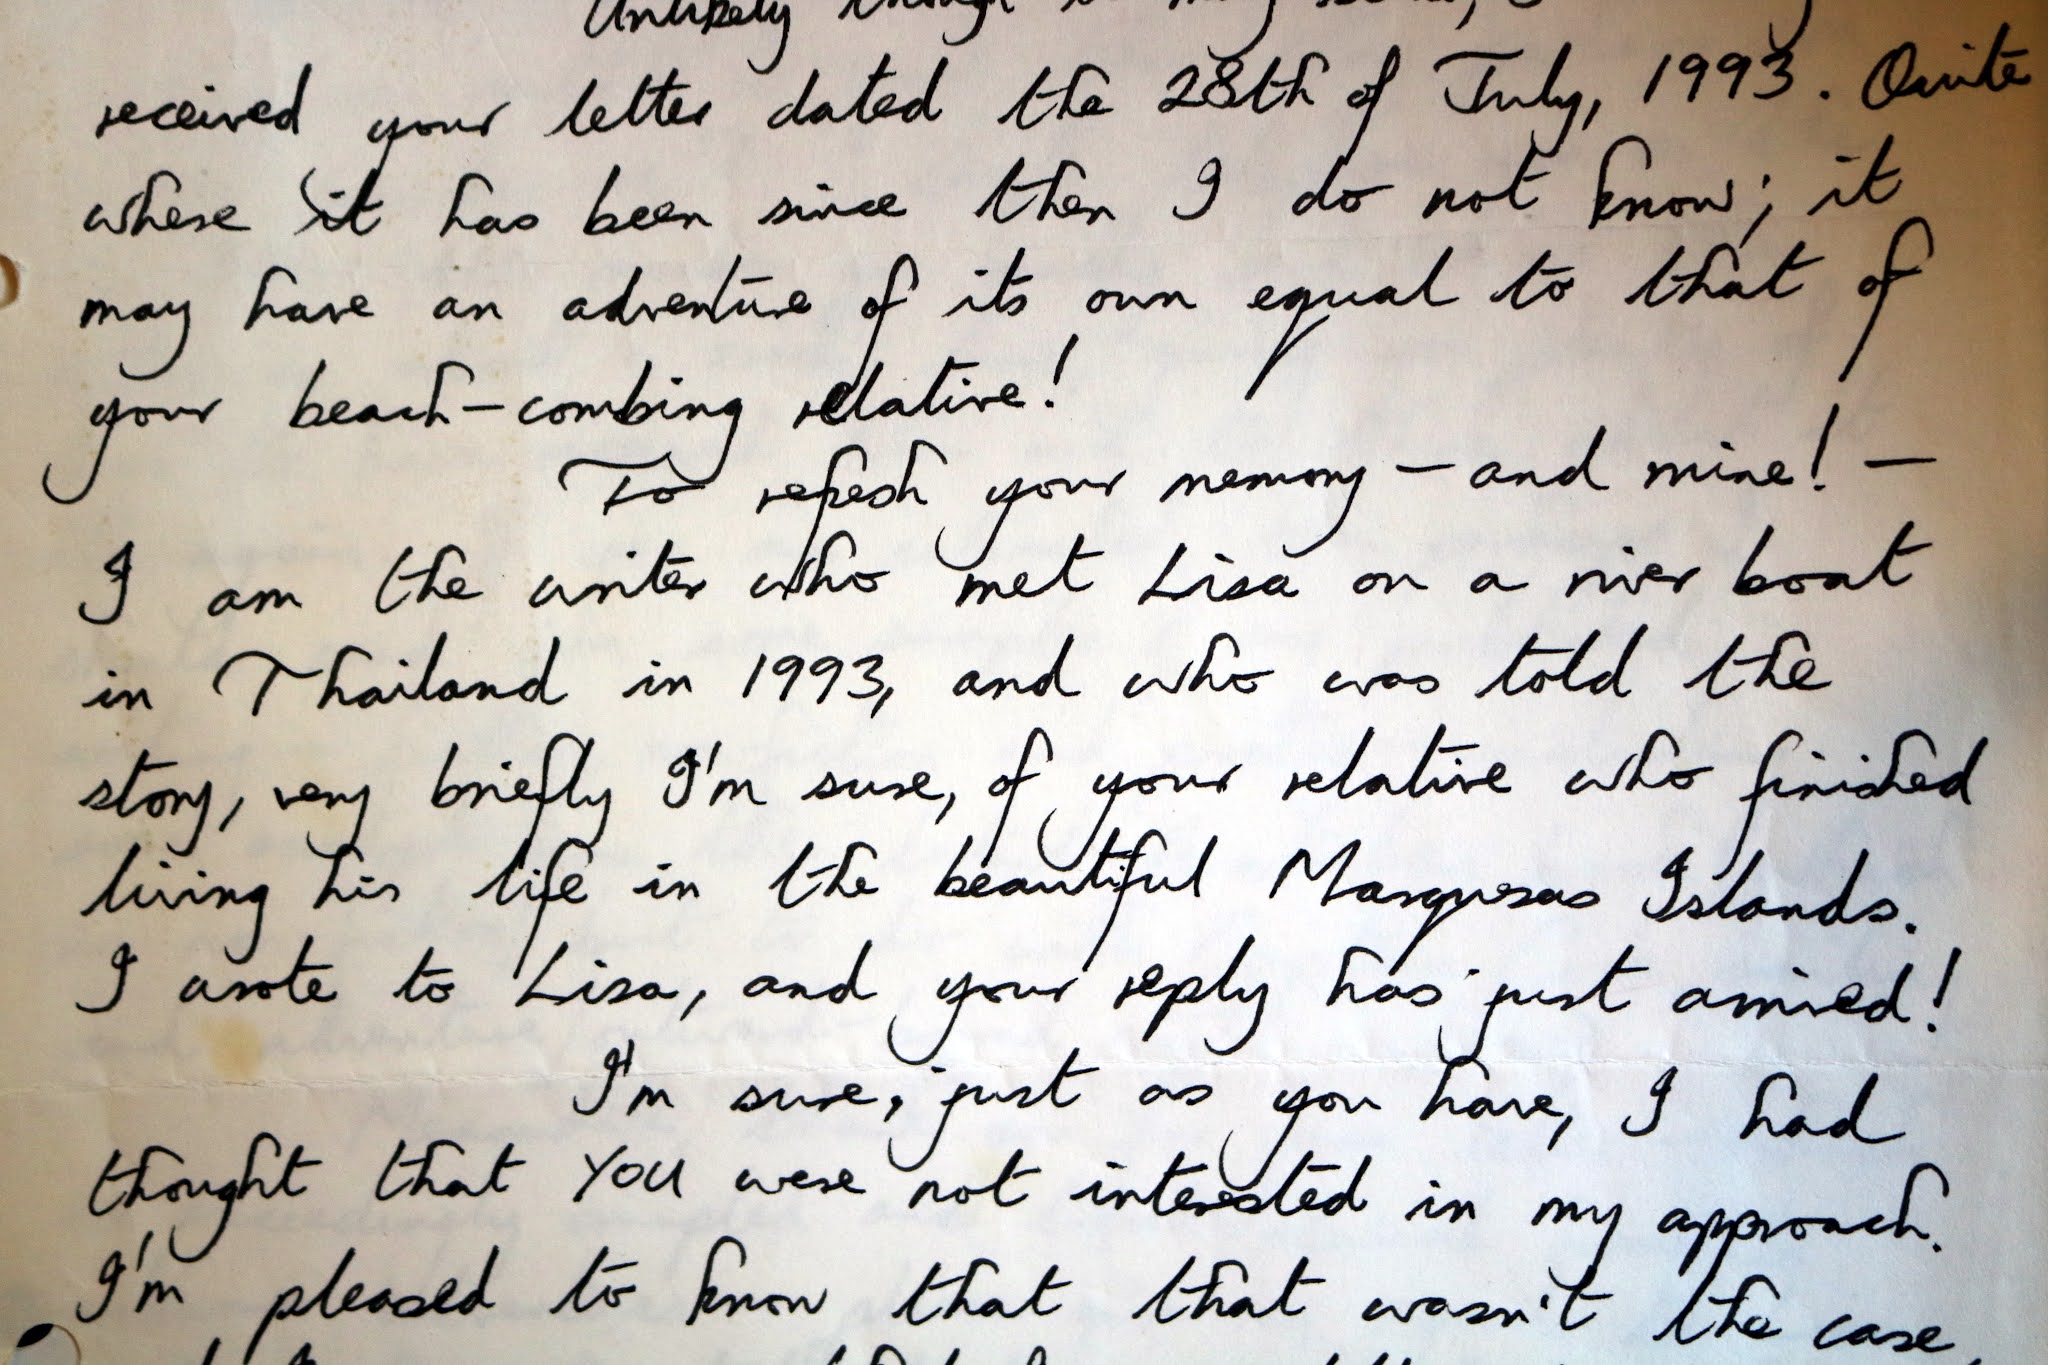 Unlikely though it may
received your letter dated the 28th of July, 1993. Quite
where it has been since then I do not know; it
may have an adventure of its own equal to that of
your beach-combing relative!
To refresh your memory — and mine! —
I am the writer who met Lisa on a river boat
in Thailand in 1993, and who was told the
story, very briefly I'm sure, of your relative who finished
living his life in the beautiful Marquesas Islands.
I wrote to Lisa, and your reply has just arrived!
I'm sure, just as you have, I had
thought that YOU were not interested in my approach.
I'm pleased to know that that wasn't the case